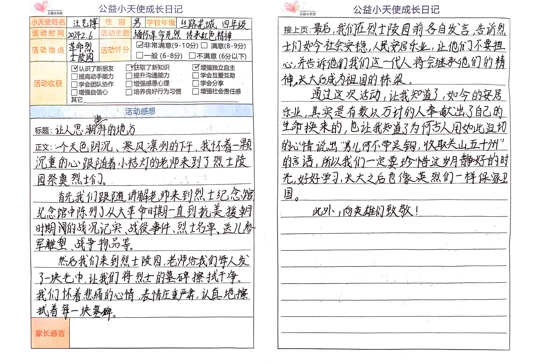 公益小天使成长日记
小天使姓名 性别 男 学校年级 四年级
活动时间 活动主题 缅怀革命先烈 传承红色精神
活动地点 革命烈士陵园 活动评价 非常满意(9-10分) 满意(8-9分)
一般(6-8分) 不满意(6分以下)
活动收获
认识了新朋友 获取了新知识 增强独立自主
提高动手能力 提升沟通能力 学会互爱互助
学会团队协作 增强感恩心理 学会分享
增强自信心 培养良好行为习惯 增强社会责任感
其它
活动感想
标题:让人思潮澎湃的地方
正文:一个天色阴沉、寒风凛冽的下午,我怀着一颗
沉重的心跟随着小桔灯的老师来到了烈士陵
园祭奠烈士们。
首先我们跟随讲解老师来到烈士纪念馆,
纪念馆中陈列了从大革命时期一直到抗美援朝
时期间的战况记实、战役事件、烈士名单、
军雕塑、战争物品等。
然后我们来到烈士陵园,老师给我们每人发
了一块毛巾,让我们将烈士的墓碑擦拭干净。
我们怀着悲痛的心情,表情庄重严肃,认真地擦
拭着每一块墓碑。
家长感言
公益小天使成长日记
接上页:最后,我们在烈士陵园前各自发言,告诉烈
士们如今社会安稳,人民安居乐业,让他们不要担
心,并告诉他们我们这一代人将会继承他们的精
神,长大后成为祖国的栋梁。
通过这次活动,让我知道了,如今的安居
乐业,其实是有数以万计的人奉献出了自己的
生命换来的,也让我知道了为何古人用如此迫切
的心情说出"男儿何不带吴钩,收取关山五十州"
的言语,所以我们一定要珍惜这岁月静好的时
光,好好学习,长大之后也像英烈们一样保家卫
国。
此外,向英雄们致敬!